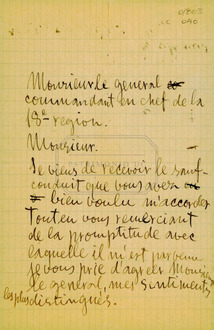 Monsieur le general
commandant en chef de la
18e region.
Monsieur.
Je viens de recevoir le sauf-
conduit que vous avez
bien voulu m'accorder
Tout en vous remerciant
de la promptitude avec
laquelle il m'est parvenu
je vous prie d'agréer Monsieur
le général, mes sentiments
les plus distingués.